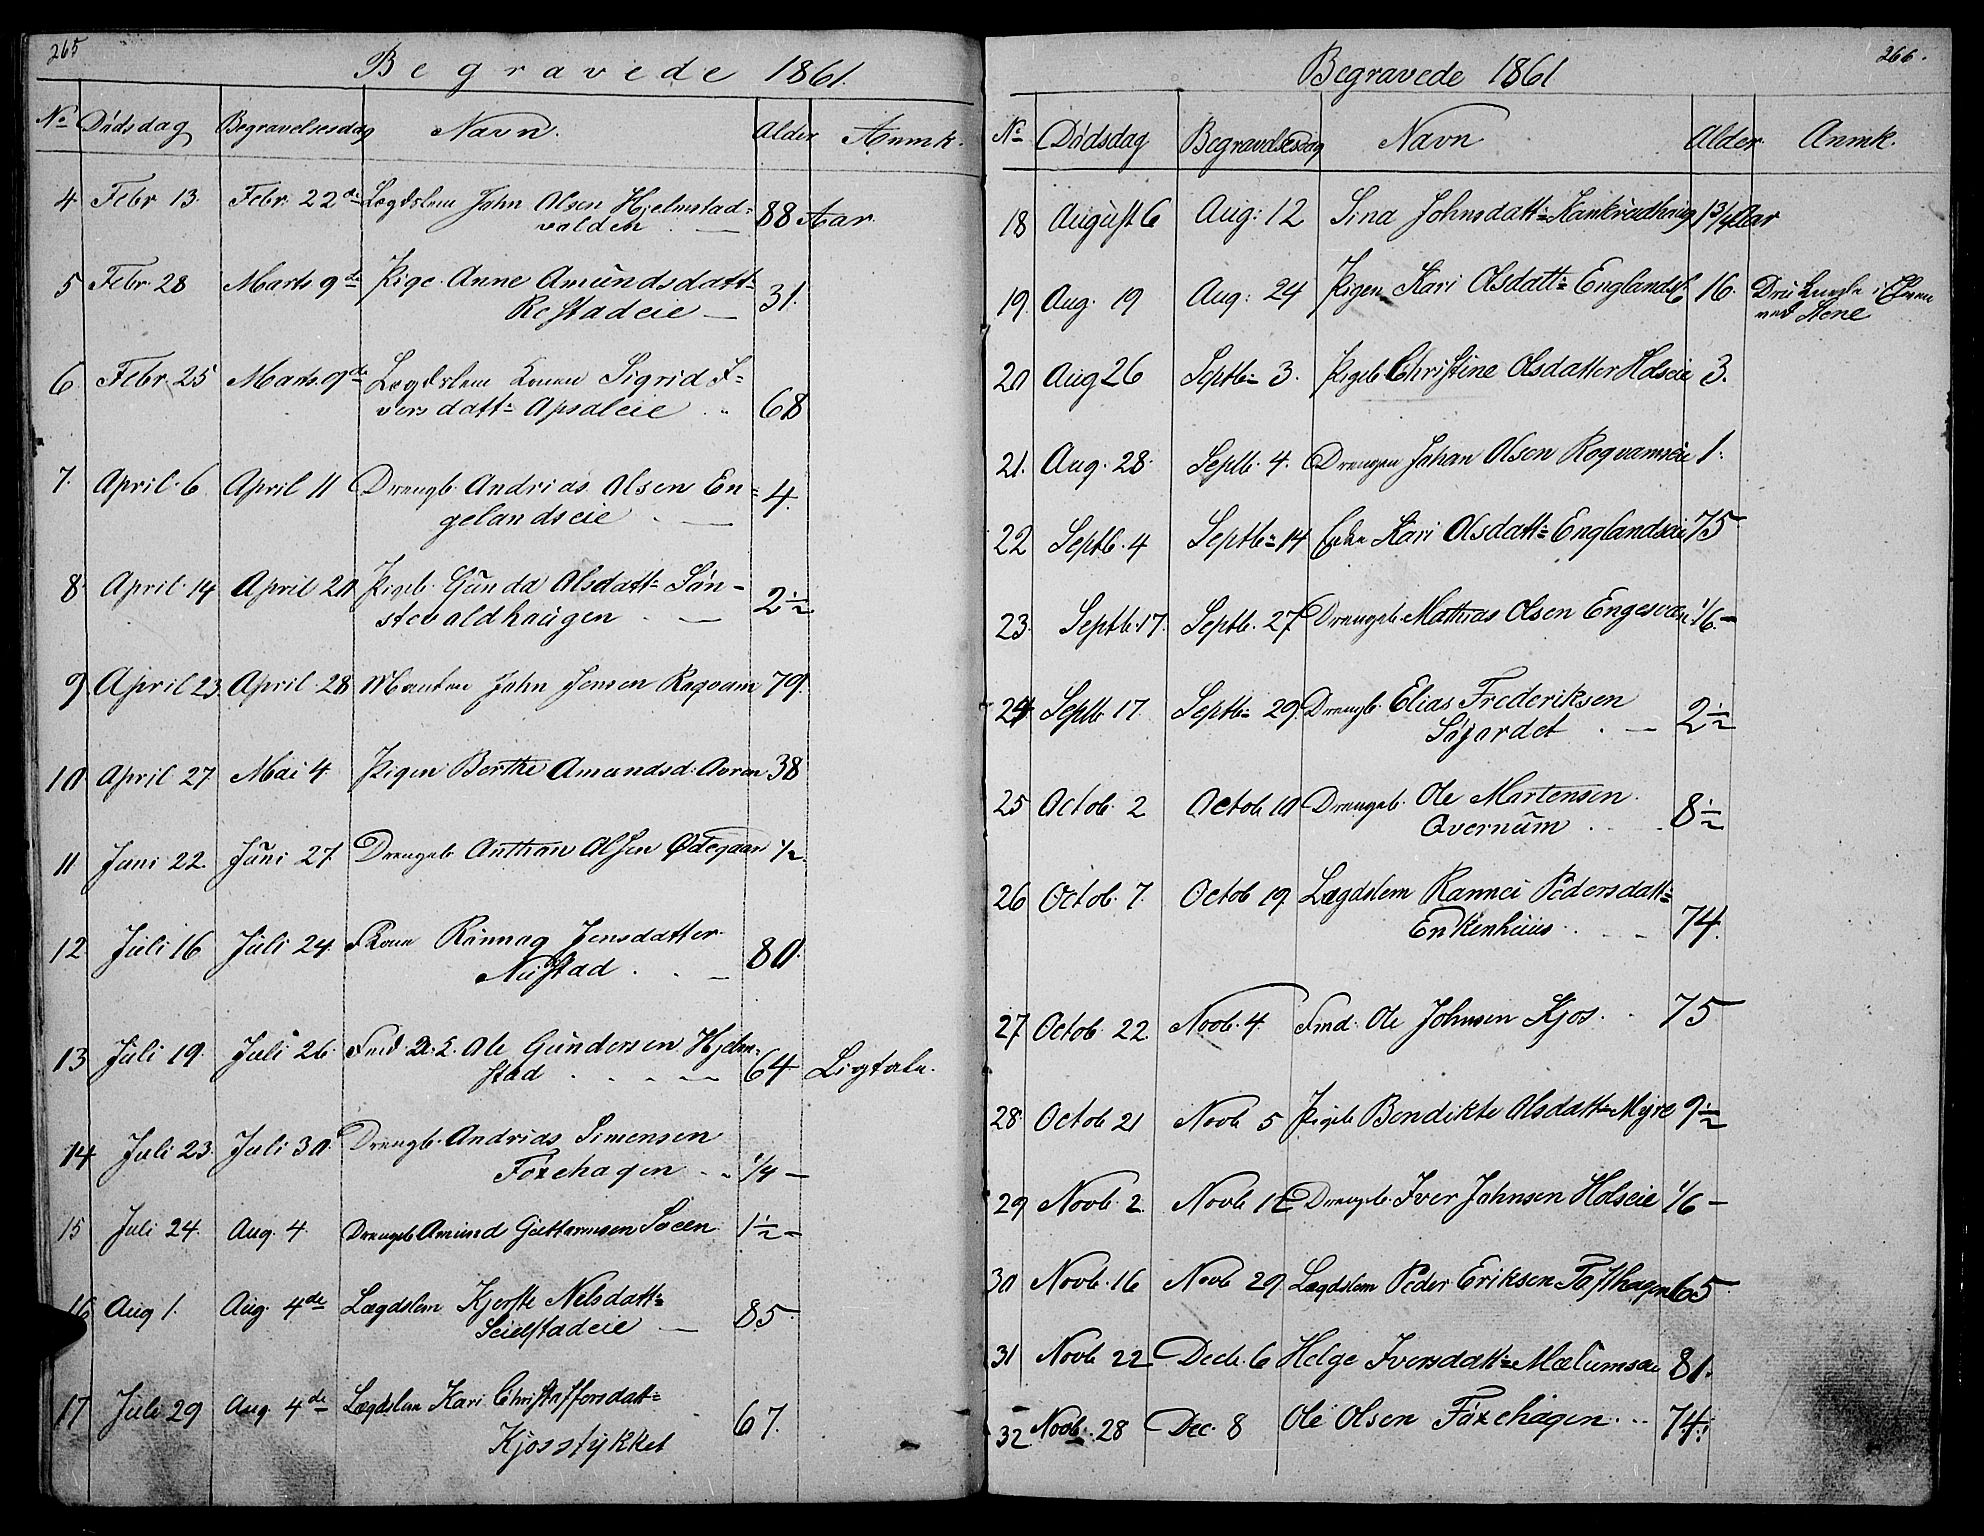 265
Begravede 1861.
No Dödsdag Begravelsesdag Navn. Alder Anmk.
4. Febr 13. Febr. 22de Lægdslem John Olsen Hjelmstad-
volden 88 Aar.
5 Febr. 28 Marts 9de Pige Anne Amundsdatt=
Restadeie 31.
6. Febr. 25 Marts 9de Lægdslem Konen Sigrid I=
versdatt= Apsaleie 68
7. April 6 April 11 Drengb. Andrias Olsen En=
gelandseie 4.
8. April 14 April 20 Pigeb. Gunda Olsdatt= Sön-
stevoldhaugen 2½
9 April 23 April 28 Manden John Jensen Roqvam 79.
10 April 27. Mai 4. Pigen Berthe Amundsd: Avren 38
11 Juni 22. Juni 27. Drengeb. Anthon Olsen Ödegaar ½
12. Juli 16 Juli 24. Konen Rönnaug Jensdatter
Nustad 80.
13 Juli 19. Juli 26. Fmd Ole Gundersen Hjelm-
stad 64 Ligtale.
14 Juli 23. Juli 30. Drengb. Andrias Simensen
Foxehagen ¼ -
15 Juli 24. Aug. 4. Drengeb. Amund Guttormsen Sveen 1½ -
16 Aug 1. Aug. 4de Lægdslem Kjersti Nelsdatt=
Seielstadeie 85.
17 Juli 29 Aug. 4de Lægdslem Kari Christoffersdatt=
Kjosstykket 67.
266.
Begravede 1861
No Dödsdag Begravelsesdag Navn Alder. Anmk.
18 August 6 Aug: 12 Sina Johnsdatt= Kankrudhaug 1¾ Aar
19. Aug. 19 Aug: 24 Pigen Kari Olsdatt= Englands 16. i Elven
ved Stene
20 Aug 26 Septb= 3. Pigeb. Christine Olsdatter Holseie 3.
21. Aug. 28. Septb. 4. Drengen Johan Olsen Roqvamseie 1.
22 Septb. 4 Septb= 14 Enke Kari Olsdatt= Englandseie 75
23. Septb. 17. Septb. 27 Drengeb. Mathias Olsen Engesveen 1/6. -
24 Septb 17. Septb= 29. Drengb. Elias Frederiksen
Söjordet 2½
25 Octob. 2 Octob. 10 Drengeb. Ole Mortensen
Qvernum 8½
26 Octob. 7. Octob 19. Lægdslem Rannei Pedersdatt=
Enkenhuus 74.
27. Octob. 22. Novb. 4. Fmd. Ole Johnsen Kjos 75
28. Octob 21 Novb. 5 Pigeb. Bendikte Olsdatt= Myre 9½
29 Novb. 2. Novb. 12 Drengb. Iver Johnsen Holseie 1/6 -
30 Novb. 16 Novb 29. Lægdslem Peder Eriksen Tofthagen 65.
31 Novb 22 Decb. 6 Helge Iversdatt= Mælumseie 81.
32 Novb. 28 Dec. 8 Ole Olsen Foxehagen 74.